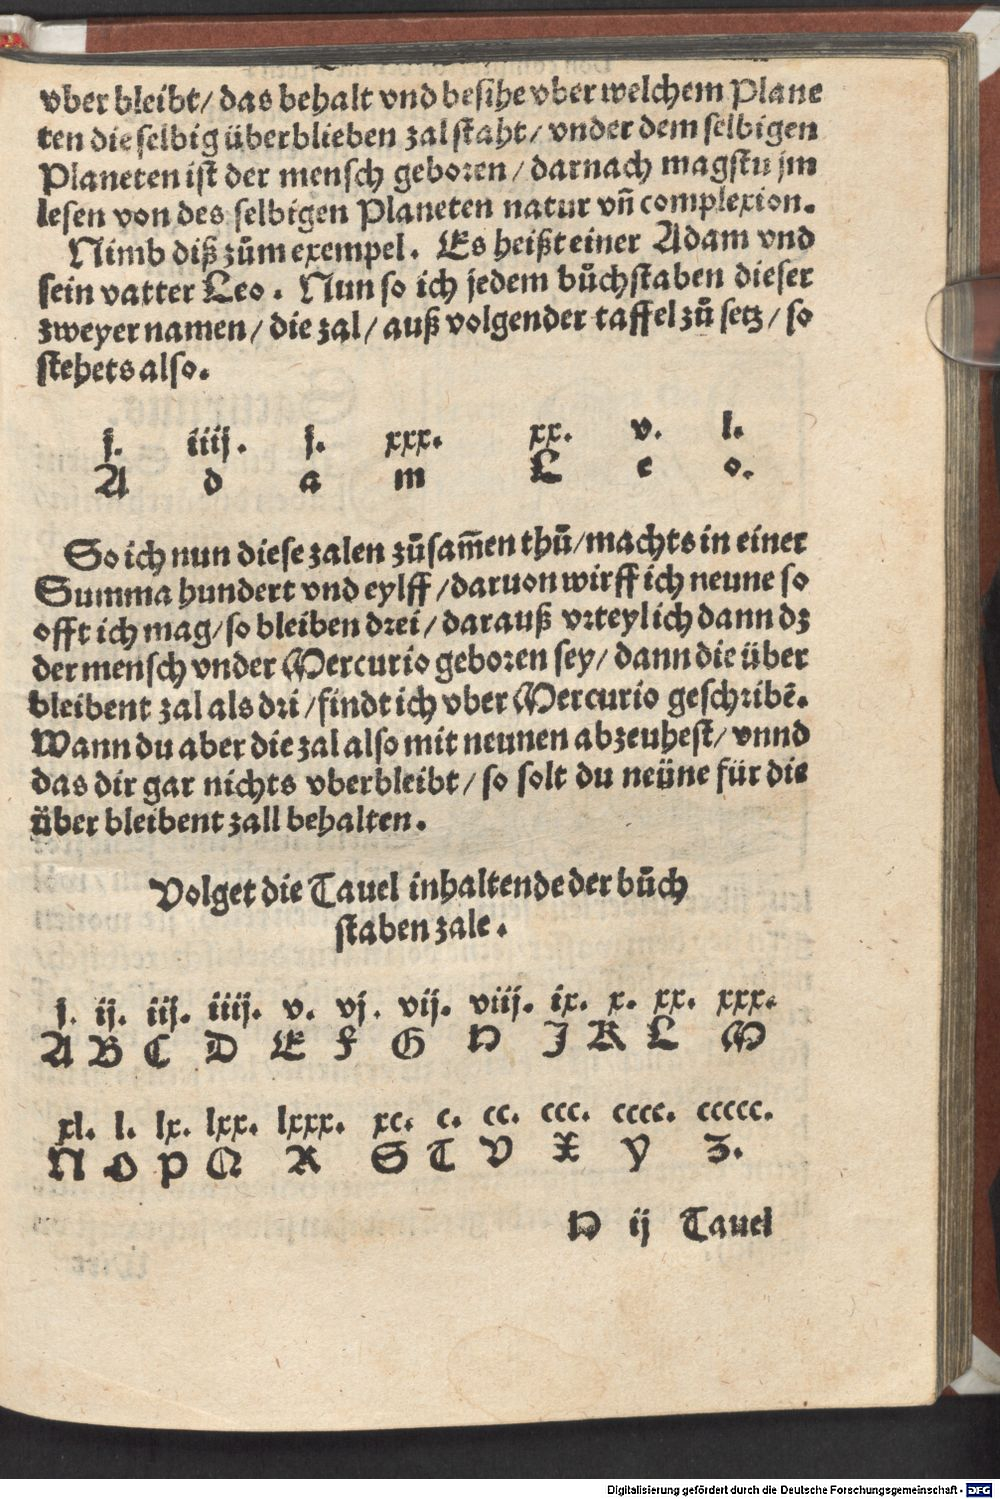 vber bleibt/ das behalt vnd besihe vber welchem Plane
ten die selbig überblieben zal staht/ vnder dem selbigen
Planeten ist der mensch geboren/ darnach magstu jm
lesen von des selbigen Planeten natur vn̄ complexion.
Nimb diß zům exempel. Es heißt einer Adam vnd
sein vatter Leo. Nun so ich jedem bůchstaben dieser
zweyer namen/ die zal/ auß volgender taffel zů setz/ so
stehets also.
j. iiij. j. xxx. xx. v. l.
A d a m L e o.
So ich nun diese zalen zůsam̄en thů/ machts in einer
Summa hundert vnd eylff/ daruon wirff ich neune so
offt ich mag/ so bleiben drei/ darauß vrteyl ich dann dz
der mensch vnder Mercurio geboren sey/ dann die über
bleibent zal als dri/ findt ich vber Mercurio geschribē.
Wann du aber die zal also mit neunen abzeuhest/ vnnd
das dir gar nichts vberbleibt/ so solt du neüne für die
über bleibent zall behalten.
Volget die Tauel inhaltende der bůch
staben zale.
j. ij. iij. iiij. v. vj. vij. viij. ix. x. xx. xxx.
A B C D E F G H J K L M
xl. l. lx. lxx. lxxx. xc. c. cc. ccc. cccc. ccccc.
N O P Q R S T V X Y Z.
H ij Tauel
Digitalisierung gefördert durch die Deutsche Forschungsgemeinschaft - DFG